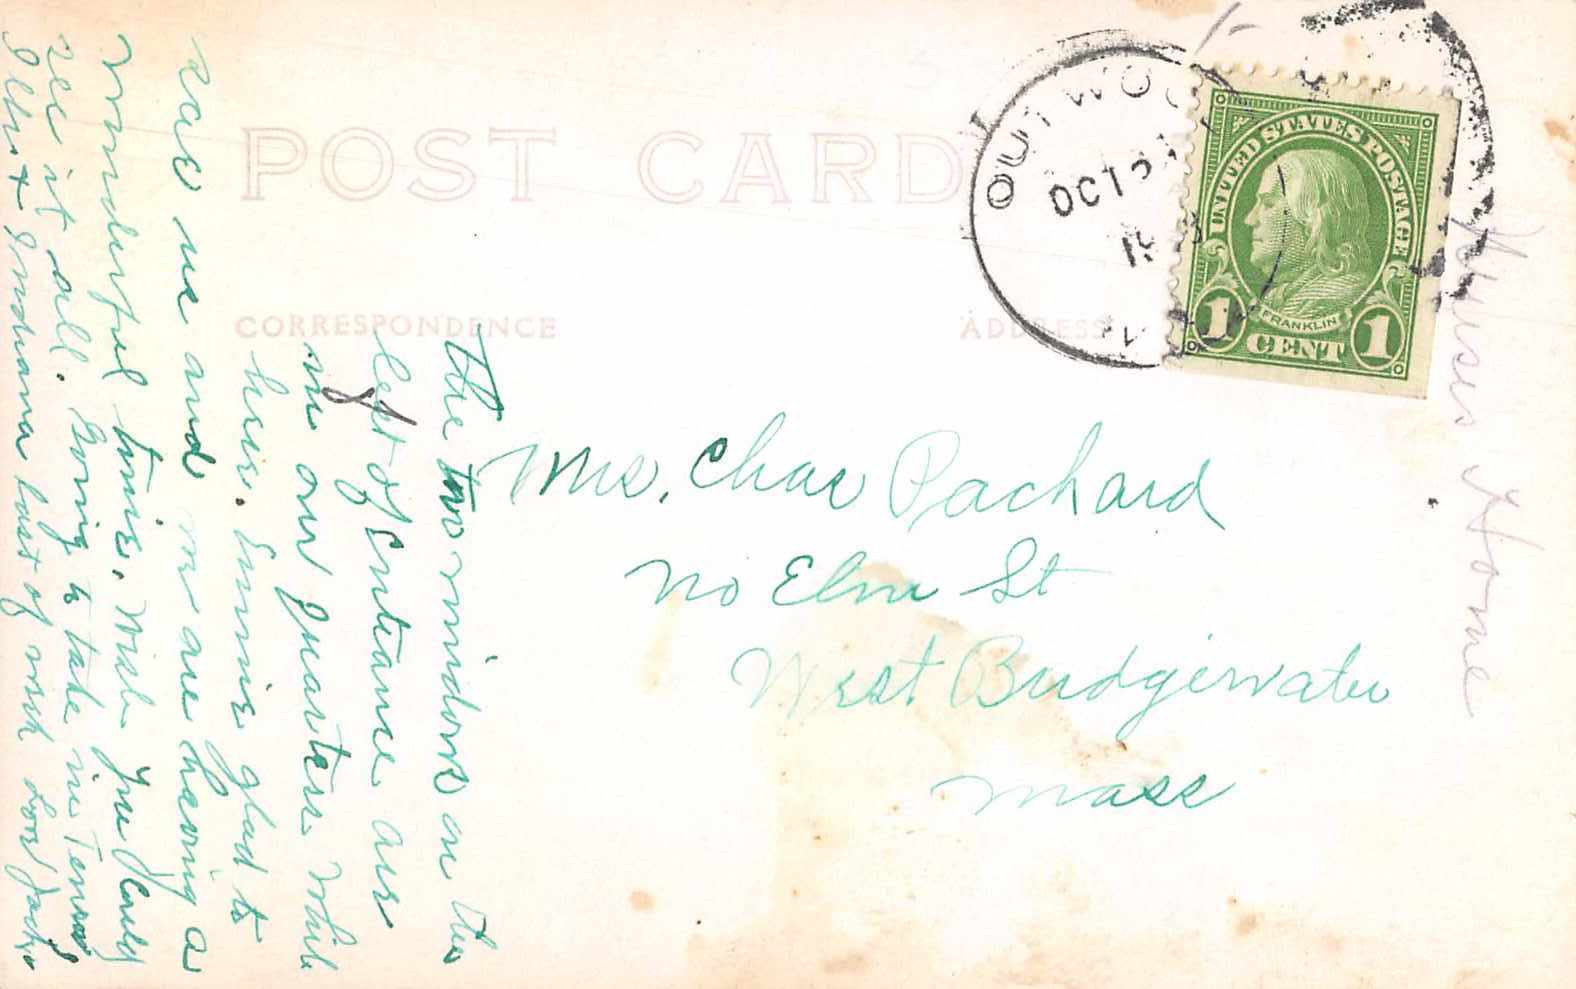 POST CARD
CORRESPONDENCE
ADDRESS
OUTWOO
OCT
UNITED STATES POSTAGE
FRANKLIN
1 CENT 1
Nurses Home
Mrs. Chas Packard
No Elm St
West Bridgewater
Mass
The two windows on the
left of entrance are
in our quarters while
here. Emmie glad to
see us and we are having a
wonderful time. Wish you could
see it all. Going to take in
Ills + Indiana last of week Love